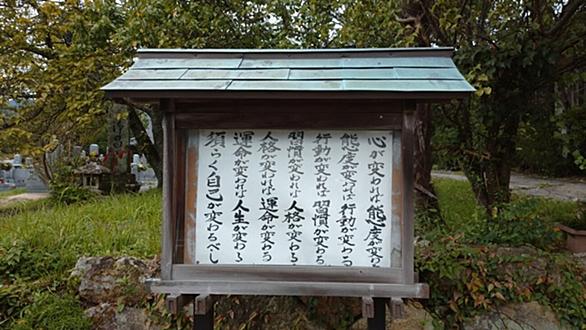 心が変われば態度が変わる
態度が変れば行動が変わる
行動が変われば習慣が変わる
習慣が変われば人格が変わる
人格が変われば運命が変わる
運命が変われば人生が変わる
須らく自己が変わるべし